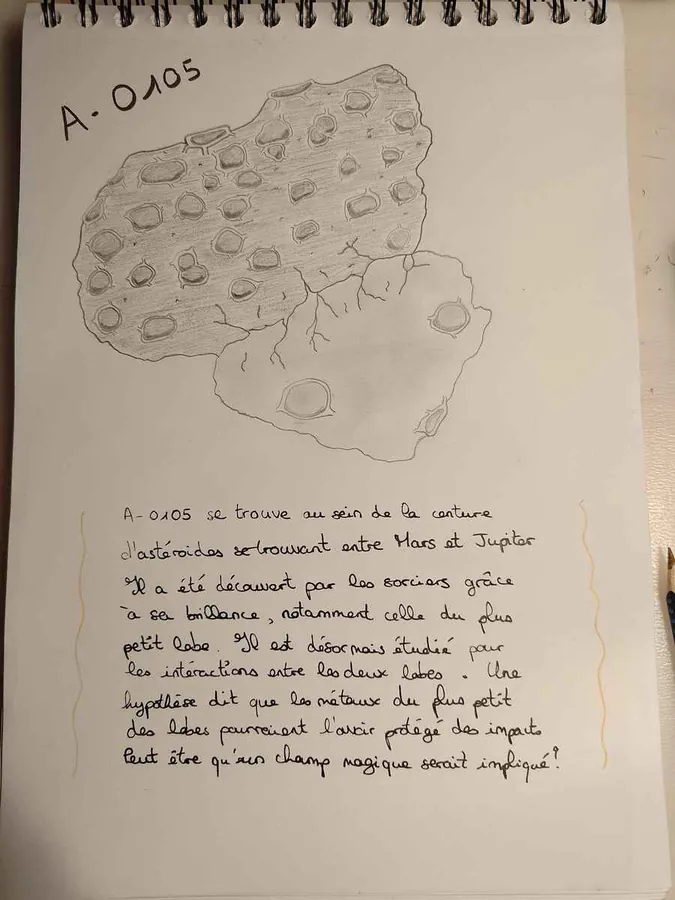 A-0105
A-0105 se trouve au sein de la centure
d'astéroïdes se trouvant entre Mars et Jupiter
Il a été découvert par les sorciers grâce
à sa brillance, notamment celle du plus
petit lobe. Il est désormais étudié pour
les intéractions entre les deux lobes. Une
hypothèse dit que les métaux du plus petit
des lobes pourraient l'avoir protégé des impacts
Peut être qu'un champ magique serait impliqué?